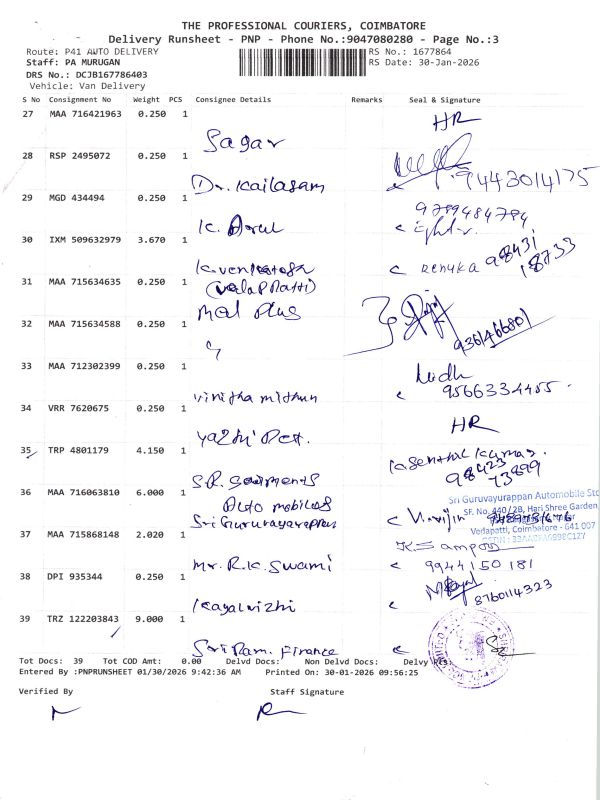 THE PROFESSIONAL COURIERS, COIMBATORE
Delivery Runsheet - PNP - Phone No.:9047080280 - Page No.:3
Route: P41 AUTO DELIVERY
Staff: PA MURUGAN
DRS No.: DCJB167786403
Vehicle: Van Delivery
RS No.: 1677864
RS Date: 30-Jan-2026
S No Consignment No Weight PCS Consignee Details Remarks Seal & Signature
27 MAA 716421963 0.250 1
Sagar HR
28 RSP 2495072 0.250 1
Dr. Kailasam 9443014175
29 MGD 434494 0.250 1
K. Arul 9789484794
30 IXM 509632979 3.670 1
K. Venkatesh Renuka 98431 18733
31 MAA 715634635 0.250 1
Med Plus
32 MAA 715634588 0.250 1
9361466801
33 MAA 712302399 0.250 1
Vinitha mithun 9566334455
34 VRR 7620675 0.250 1
Yazhi Pet. HR
35 TRP 4801179 4.150 1
S.R. Garments Senthil Kumar 98423 73899
36 MAA 716063810 6.000 1
Auto mobiles
Sri Guruvayurappan
Sri Guruvayurappan Automobile
SF. No. 440/2B, Hari Shree Garden
Vedapatti, Coimbatore - 641 007
37 MAA 715868148 2.020 1
Mr. R.K. Swami 9944150181
38 DPI 935344 0.250 1
Kayalvizhi 8760114323
39 TRZ 122203843 9.000 1
Sri Ram. Finance
Tot Docs: 39 Tot COD Amt: 0.00 Delvd Docs: Non Delvd Docs: Delvy
Entered By :PNPRUNSHEET 01/30/2026 9:42:36 AM Printed On: 30-01-2026 09:56:25
Verified By Staff Signature